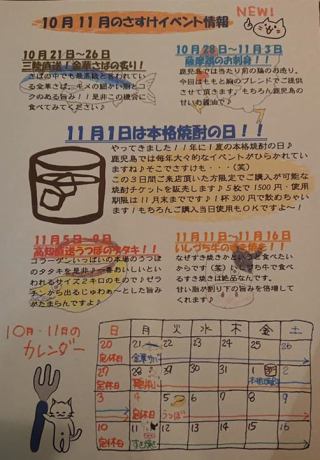 NEW!
10月11月のさすけイベント情報
10月21日～26日
三陸直送!金華さばの炙り!
さばの中でも最高級と言われている金華さば。キメの細かい脂とコクのある旨み!!是非この機会に食べてみてください♪
10月28日～11月3日
薩摩鶏のお刺身!!
鹿児島では当たり前の鶏のお造り。今回はももと胸のブレンドでご提供させて頂きます。もちろん鹿児島の甘いお醤油で♪
11月1日は本格焼酎の日!!
やってきました!!年に1度の本格焼酎の日♪
鹿児島では毎年大々的なイベントがひらかれていますね♪そこでさすけも・・(笑)
この3日間ご来店頂いた方限定でご購入が可能な焼酎チケットを販売します♪5枚で1500円・使用期限は11月末までです!1杯300円で飲めちゃいます!もちろんご購入当日使用もOKですよ～!
11月5日～9日
高知直送うつぼのタタキ!!
コラーゲンいっぱいの本場のうつぼのタタキを是非♪一番おいしいといわれるサイズ2キロのもので♪ゼラチンから出るじゅわぁ～とした旨みがたまらんですよ♪
11月11日～11月16日
いしづち牛のすき焼き!!
なぜすき焼かというと食べたいからです(笑)いしづち牛で食べるすき焼きは絶品なんです。
甘い脂が割り下の旨みを倍増してくれます♪
10月・11月の
カレンダー
日 月 火 水 木 金 土
20 21 22 23 24 25 26
定休日
27 28 29 30 31 1 2
定休日
3 4 5 6 7 8 9
定休日 うつぼ
10 11 12 13 14 15 16
定休日 すき焼き